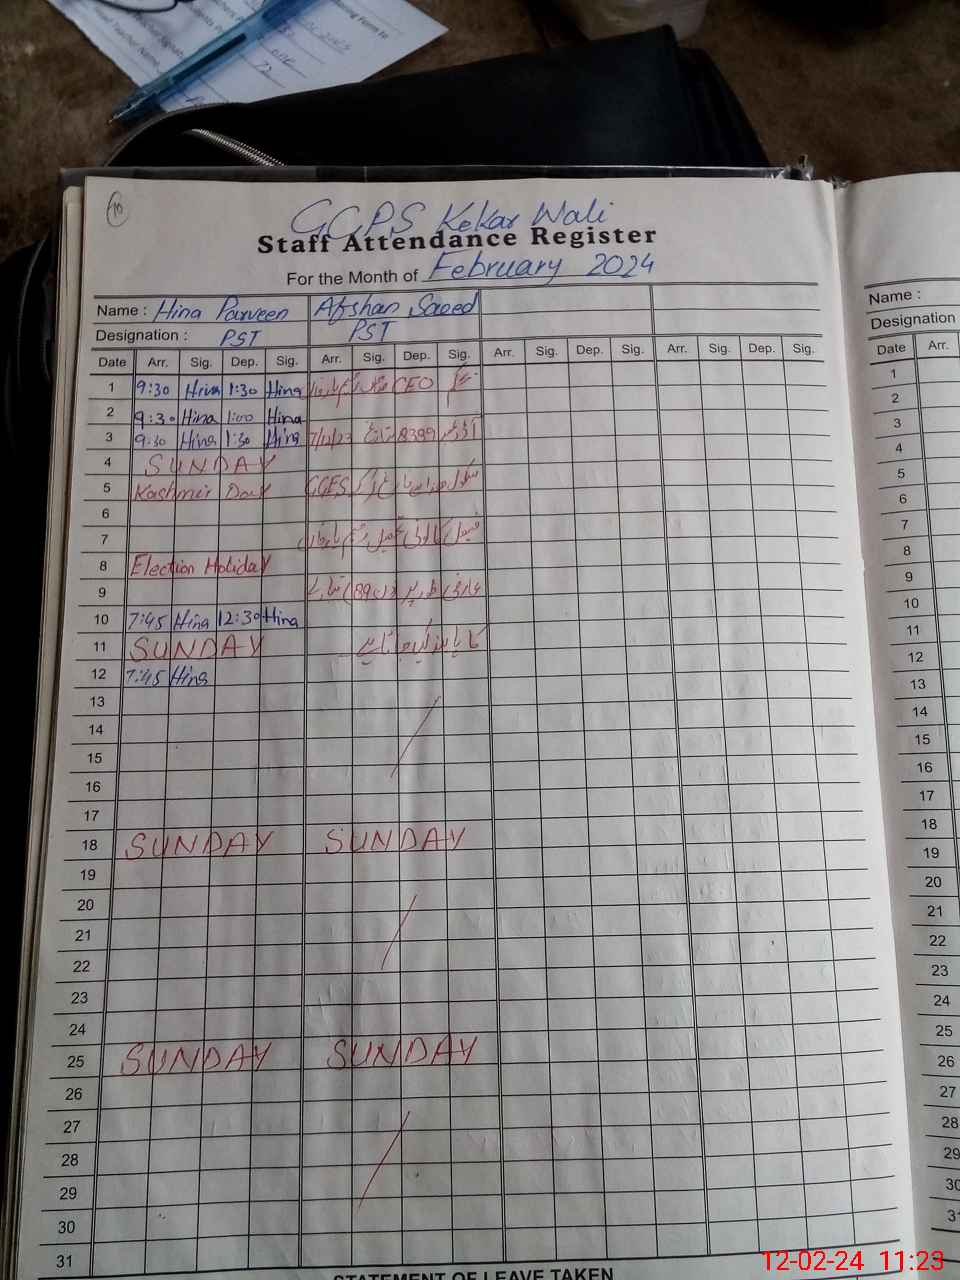 10
GGPS Kekar Wali
Staff Attendance Register
For the Month of February 2024
Name : Hina Parveen Afshan Saeed
Designation : PST PST
Date Arr. Sig. Dep. Sig. Arr. Sig. Dep. Sig. Arr. Sig. Dep. Sig. Arr. Sig. Dep. Sig.
1 9:30 Hina 1:30 Hina CEO
2 9:30 Hina 1:00 Hina
3 9:30 Hina 1:30 Hina 7/12/23 8399
4 SUNDAY
5 Kashmir Day GGES
6
7
8 Election Holiday
9
10 7:45 Hina 12:30 Hina
11 SUNDAY
12 7:45 Hina
13
14
15
16
17
18 SUNDAY SUNDAY
19
20
21
22
23
24
25 SUNDAY SUNDAY
26
27
28
29
30
31
STATEMENT OF LEAVE TAKEN
Name :
Designation
Date Arr.
1
2
3
4
5
6
7
8
9
10
11
12
13
14
15
16
17
18
19
20
21
22
23
24
25
26
27
28
29
30
31
12-02-24 11:23